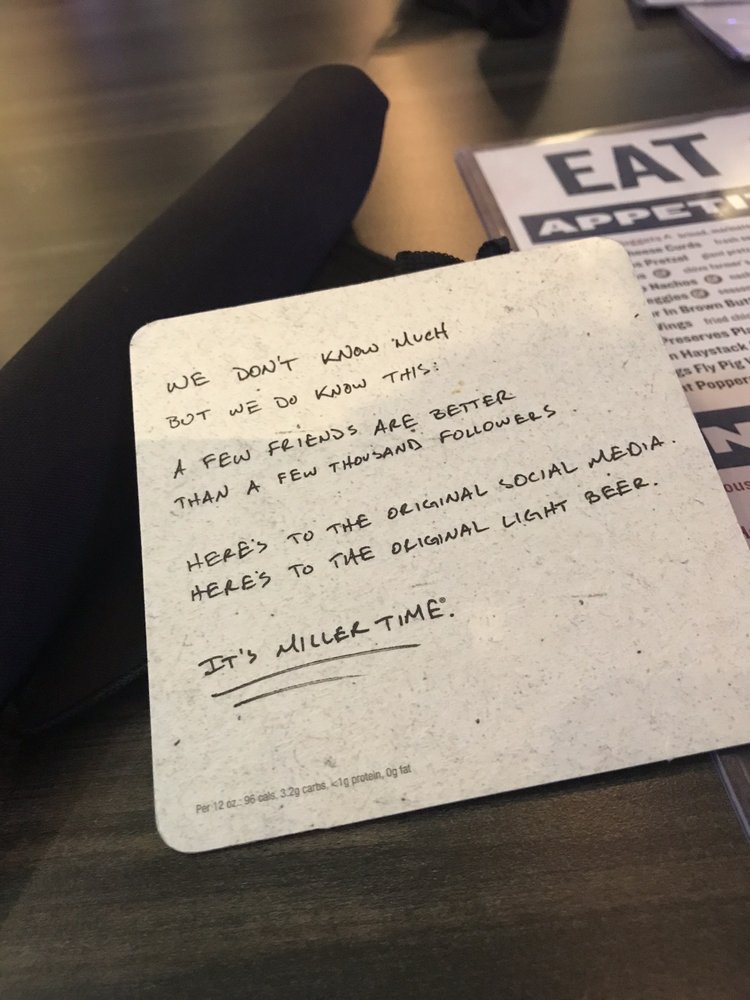 WE DON'T KNOW MUCH
BUT WE DO KNOW THIS:
A FEW FRIENDS ARE BETTER
THAN A FEW THOUSAND FOLLOWERS.
HERE'S TO THE ORIGINAL SOCIAL MEDIA.
HERE'S TO THE ORIGINAL LIGHT BEER.
IT'S MILLER TIME®.
Per 12 oz.: 96 cals, 3.2g carbs, <1g protein, 0g fat
EAT
APPETI
heese Curds
Pretzel
Nachos
eggies
r In Brown But
Wings fried
Preserves Pl
n Haystack
gs Fly Pig
t Popper
N